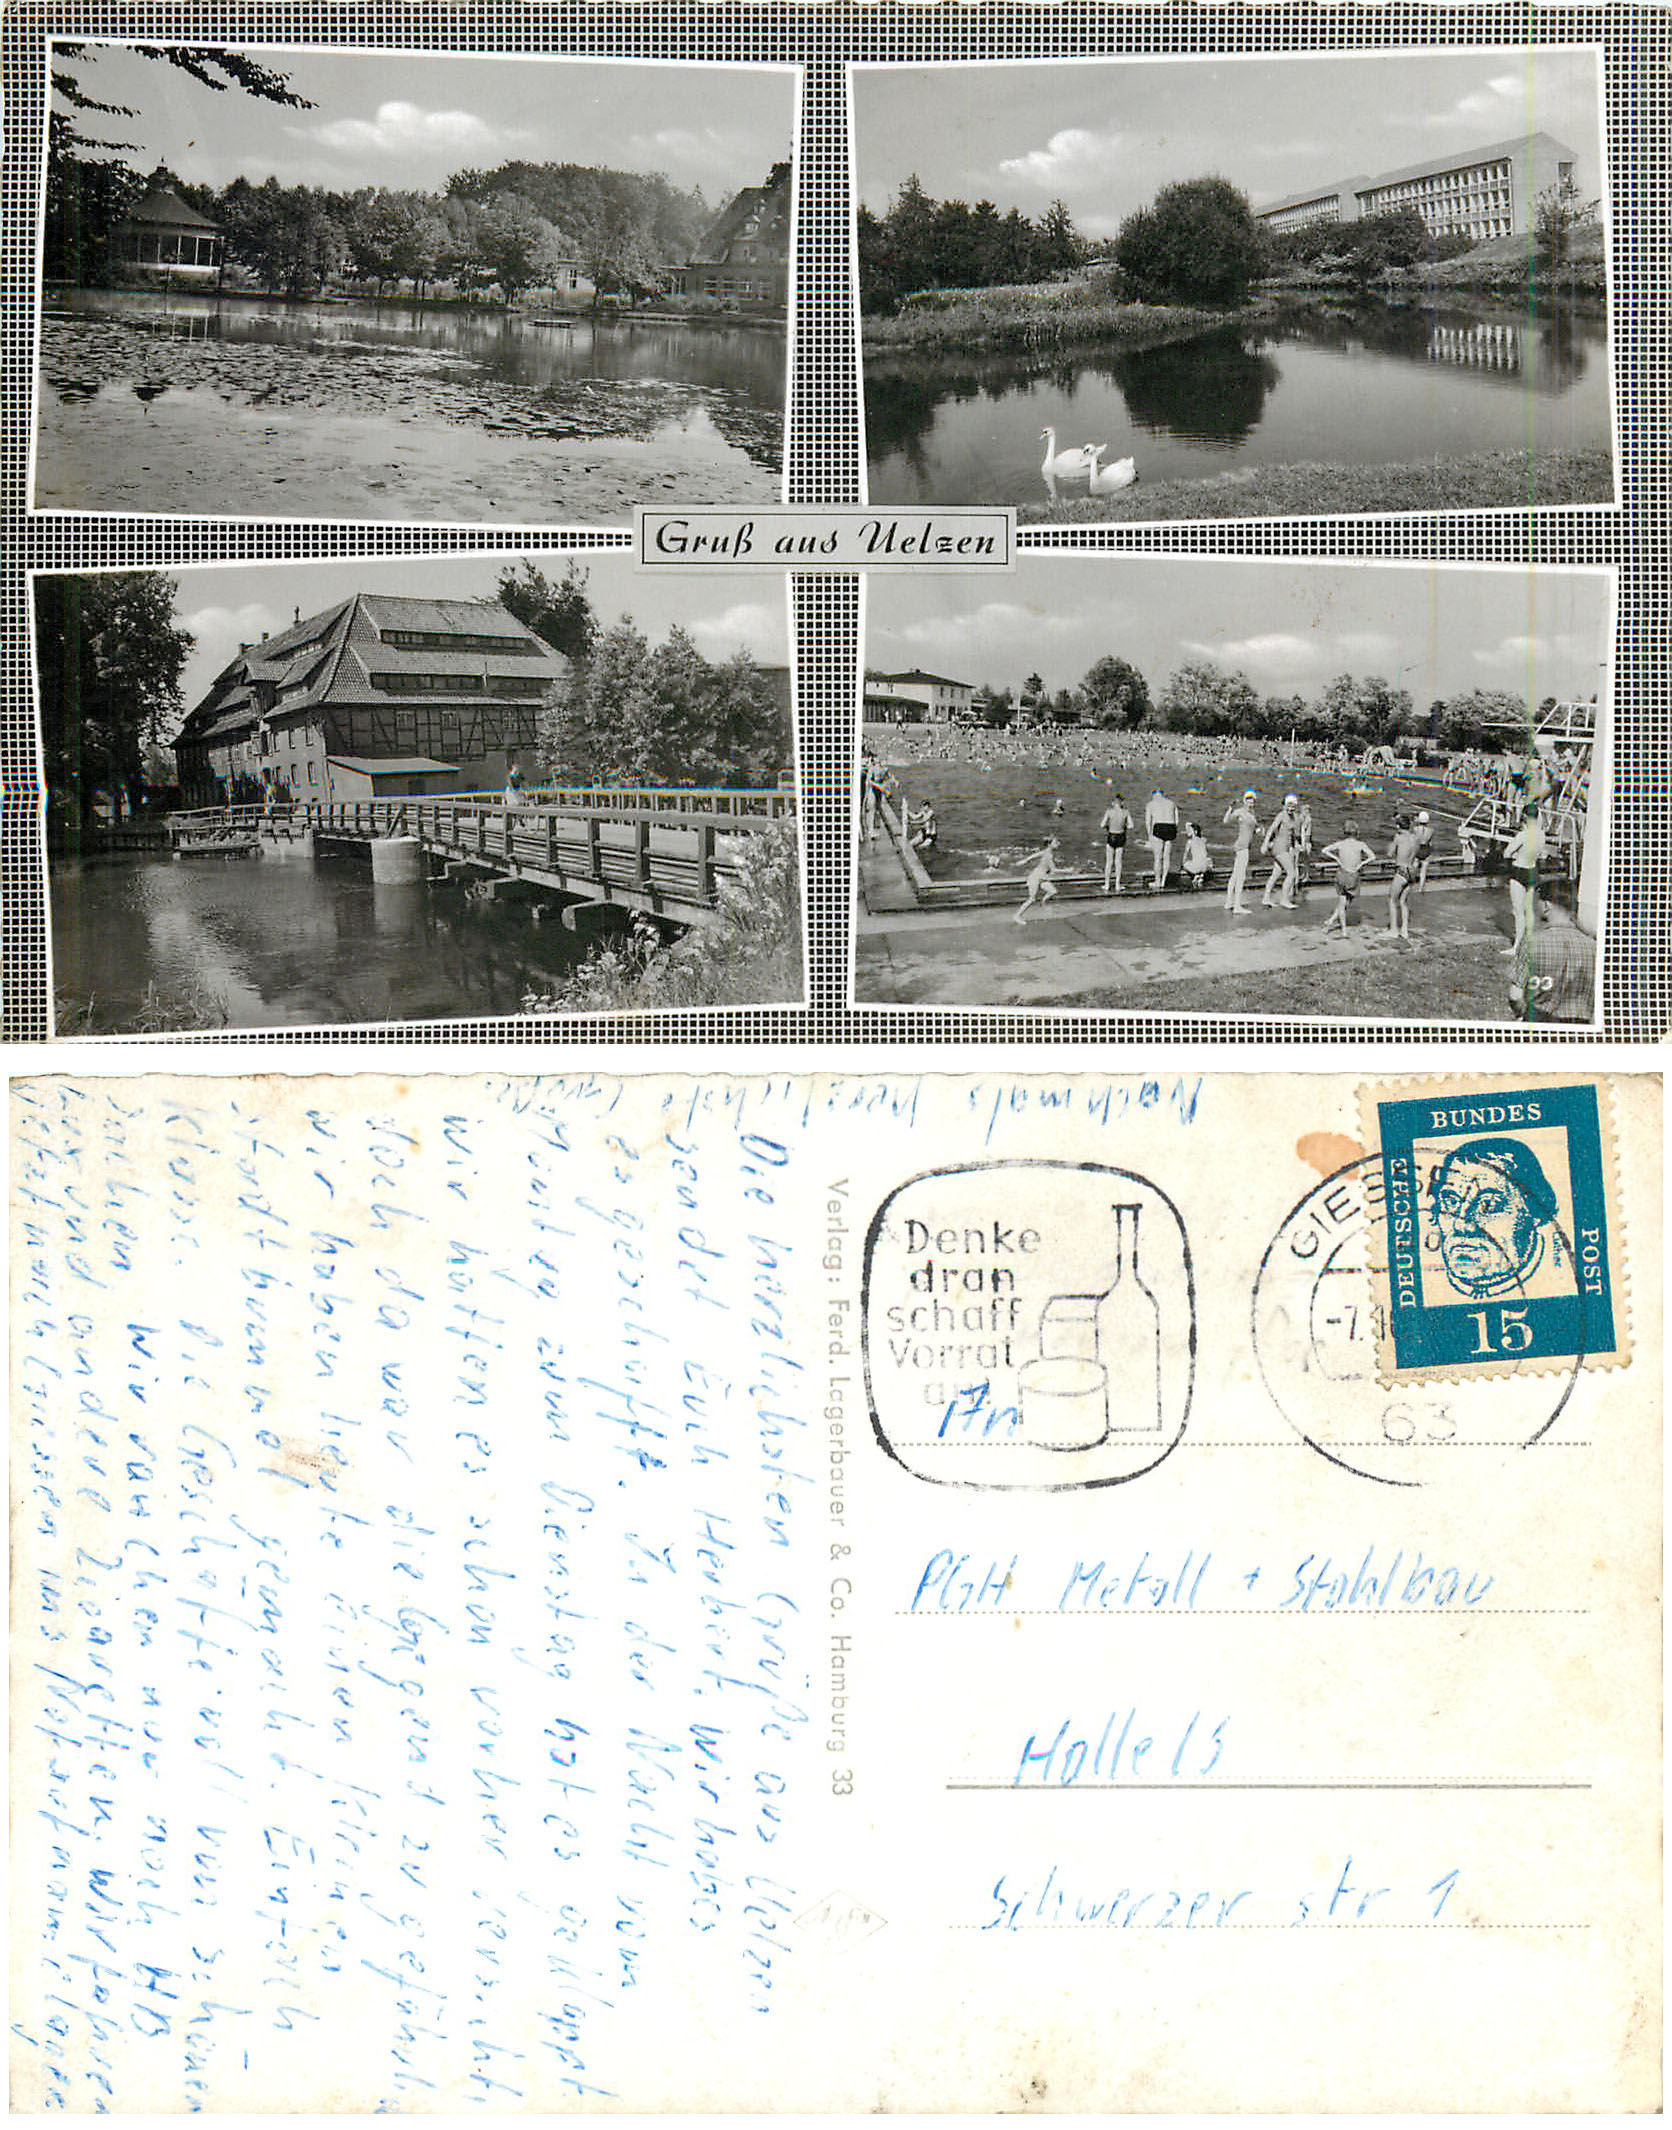 Gruß aus Uelzen
93
Nochmals herzlichste Grüße.
BUNDES
DEUTSCHE
POST
15
GIESSEN
-7.
63
Denke
dran
schaff
Vorrat
an!
An
PGH Metall + Stahlbau
Holleis
Schwerzer str 1
Verlag: Ferd. Lagerbauer & Co. Hamburg 33
Die herzlichsten Grüße aus Uelzen
sendet Euch Herbert. Wir haben
es geschafft. In der Nacht vom
Montag zum Dienstag hat es geklappt.
Wir hatten es schon vorher versucht,
doch da war die Gegend zu gefährlich
Wir haben heute einen kleinen
Stadtbummel gemacht. Einfach
Klasse. Die Geschäfte voll von schönen
Sachen. Wir rauchen nur noch HB
und andere Zigaretten. Wir fahren
jetzt nach Giessen ins Notaufnamelager